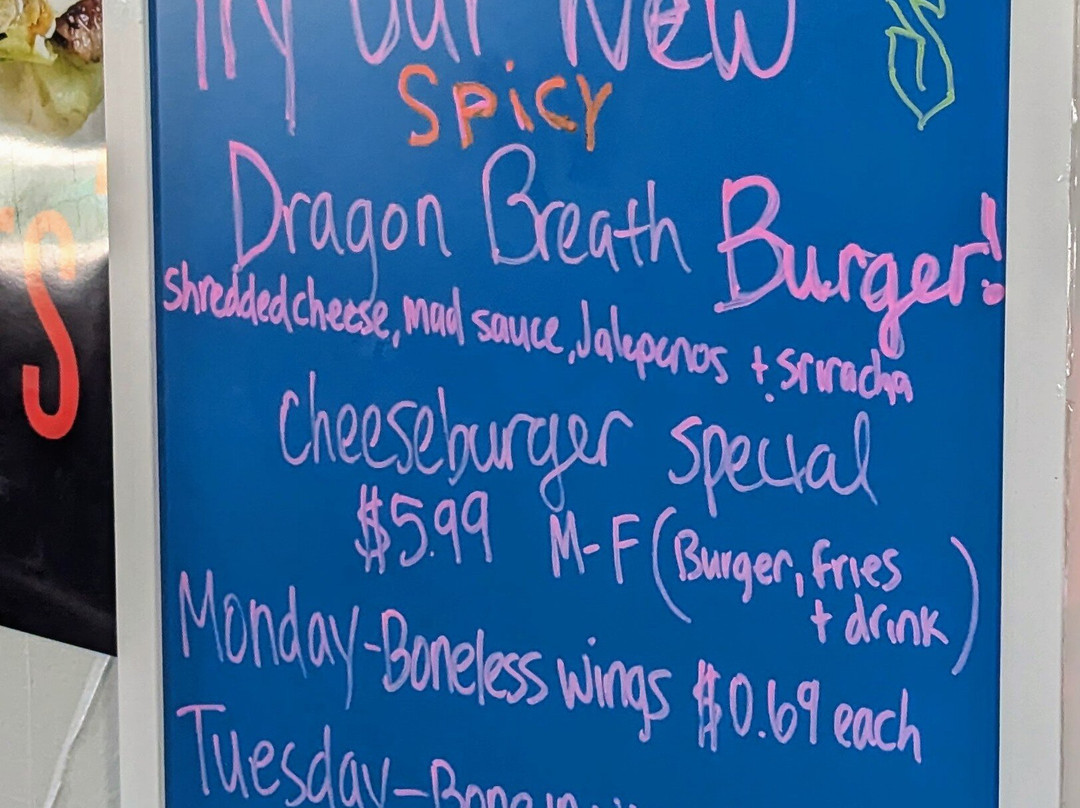 Try our New
SPicy
Dragon Breath Burger!
shredded cheese, mad sauce, Jalepenos + sriracha
cheeseburger special
$5.99 M-F (Burger, fries
+ drink)
Monday-Boneless wings $0.69 each
Tuesday-